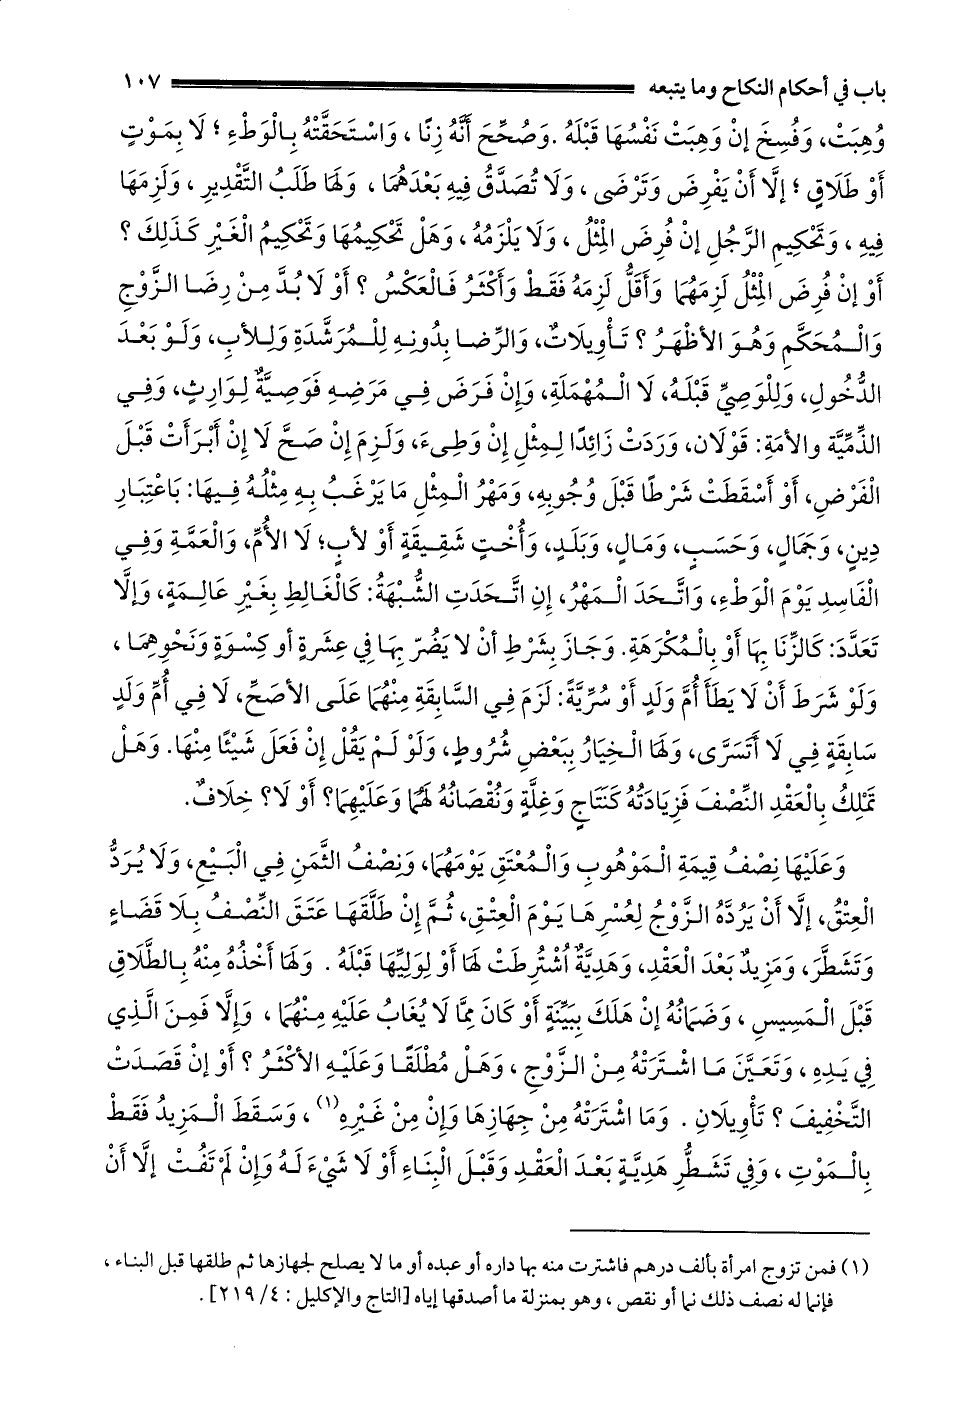 باب في أحكام النكاح وما يتبعه ١٠٧
وُهِبَتْ، وَفُسِخَ إنْ وَهِبَتْ نَفْسُهَا قَبْلَهُ .وَصُحِّحَ أَنَّهُ زِنًا ، وَاسْتَحَقَّتْهُ بِالْوَطْءِ ؛ لَا بِمَوْتٍ
أَوْ طَلَاقٍ ؛ إلَّا أَنْ يَفْرِضَ وَتَرْضَى ، وَلَا تُصَدَّقُ فِيهِ بَعْدَهُمَا ، وَلَهَا طَلَبُ التَّقْدِيرِ ، وَلَزِمَهَا
فِيهِ ، وَتَحْكِيمِ الرَّجُلِ إنْ فُرِضَ الْمِثْلُ ، وَلَا يَلْزَمُهُ ، وَهَلْ تَحْكِيمُهَا وَتَحْكِيمُ الْغَيْرِ كَذَلِكَ ؟
أَوْ إنْ فُرِضَ الْمِثْلُ لَزِمَهُمَا وَأَقَلُّ لَزِمَهُ فَقَطْ وَأَكْثَرُ فَالْعَكْسُ ؟ أَوْ لَا بُدَّ مِنْ رِضَا الزَّوْجِ
وَالْمُحَكَّمِ وَهُوَ الأَظْهَرُ ؟ تَأْوِيلَاتٌ، وَالرِّضَا بِدُونِهِ لِلْمُرَشَّدَةِ وَلِلأَبِ، وَلَوْ بَعْدَ
الدُّخُولِ، وَلِلْوَصِيِّ قَبْلَهُ، لَا الْمُهْمَلَةِ، وَإِنْ فَرَضَ فِي مَرَضِهِ فَوَصِيَّةٌ لِوَارِثٍ، وَفِي
الذِّمِّيَّة والأَمَةِ: قَوْلَان، وَرَدَتْ زَائِدًا لِمِثْلِ إنْ وَطِىءَ، وَلَزِمَ إنْ صَحَّ لَا إنْ أَبْرَأَتْ قَبْلَ
الْفَرْضِ، أَوْ أَسْقَطَتْ شَرْطًا قَبْلَ وُجُوبِهِ، وَمَهْرُ الْمِثْلِ مَا يَرْغَبُ بِهِ مِثْلُهُ فِيهَا: بَاعْتِبَارِ
دِينٍ، وَجَمَالٍ، وَحَسَبٍ، وَمَالٍ، وَبَلَدٍ، وَأُخْتٍ شَقِيقَةٍ أَوْ لأَبٍ؛ لَا الأُمِّ، وَالْعَمَّةِ وَفِي
الْفَاسِدِ يَوْمَ الْوَطْءِ، وَاتَّحَدَ الْمَهْرُ، إنِ اتَّحَدَتِ الشُّبْهَةُ: كَالْغَالِطِ بِغَيْرِ عَالِمَةٍ، وَإِلَّا
تَعَدَّدَ: كَالزِّنَا بِهَا أَوْ بِالْمُكْرَهَةِ. وَجَازَ بِشَرْطِ أنْ لا يَضُرّ بِهَا فِي عِشْرةٍ أو كِسْوَةٍ وَنَحْوِهِمَا ،
وَلَوْ شَرَطَ أَنْ لَا يَطَأَ أُمَّ وَلَدٍ أَوْ سُرِّيَّةً: لَزِمَ فِي السَّابِقَةِ مِنْهُمَا عَلَى الأَصَحِّ، لَا فِي أُمِّ وَلَدٍ
سَابِقَةٍ فِي لَا أَتَسَرَّى، وَلَهَا الْخِيَارُ بِبَعْضِ شُرُوطٍ، وَلَوْ لَمْ يَقُلْ إنْ فَعَلَ شَيْئًا مِنْهَا. وَهَلْ
تَمْلِكُ بِالْعَقْدِ النِّصْفَ فَزِيَادَتُهُ كَنَتَاجٍ وَغِلَّةٍ وَنُقْصَانُهُ لَهُمَا وَعَلَيْهِمَا؟ أَوْ لَا؟ خِلَافٌ.
وَعَلَيْهَا نِصْفُ قِيمَةِ الْمَوْهُوبِ وَالْمُعْتَقِ يَوْمَهُمَا، وَنِصْفُ الثَّمَنِ فِي الْبَيْعِ، وَلَا يُرَدُّ
الْعِتْقُ، إلَّا أَنْ يَرُدَّهُ الزَّوْجُ لِعُسْرِهَا يَوْمَ الْعِتْقِ، ثُمَّ إِنْ طَلَّقَهَا عَتَقَ النِّصْفُ بِلَا قَضَاءٍ
وَتَشَطَّرَ، وَمَزِيدٌ بَعْدَ الْعَقْدِ، وَهَدِيَّةٌ اُشْتُرِطَتْ لَهَا أَوْ لِوَلِيِّهَا قَبْلَهُ . وَلَهَا أَخْذُهُ مِنْهُ بِالطَّلَاقِ
قَبْلَ الْمَسِيسِ ، وَضَمَانُهُ إنْ هَلَكَ بِبَيِّنَةٍ أَوْ كَانَ مِمَّا لَا يُغَابُ عَلَيْهِ مِنْهُمَا ، وَإِلَّا فَمِنَ الَّذِي
فِي يَدِهِ ، وَتَعَيَّنَ مَا اشْتَرَتْهُ مِنْ الزَّوْجِ ، وَهَلْ مُطْلَقًا وَعَلَيْهِ الأَكْثَرُ ؟ أَوْ إنْ قَصَدَتْ
التَّخْفِيفَ ؟ تَأْوِيلَانِ . وَمَا اشْتَرَتْهُ مِنْ جِهَازِهَا وَإِنْ مِنْ غَيْرِهِ(١) ، وَسَقَطَ الْمَزِيدُ فَقَطْ
بِالْمَوْتِ ، وَفِي تَشَطُّرِ هَدِيَّةٍ بَعْدَ الْعَقْدِ وَقَبْلَ الْبِنَاءِ أَوْ لَا شَيْءَ لَهُ وَإِنْ لَمْ تَفُتْ إلَّا أَنْ
(١) فمن تزوج امرأة بألف درهم فاشترت منه بها داره أو عبده أو ما لا يصلح لجهازها ثم طلقها قبل البناء ،
فإنما له نصف ذلك نما أو نقص ، وهو بمنزلة ما أصدقها إياه [التاج والإكليل : ٤/ ٢١٩] .